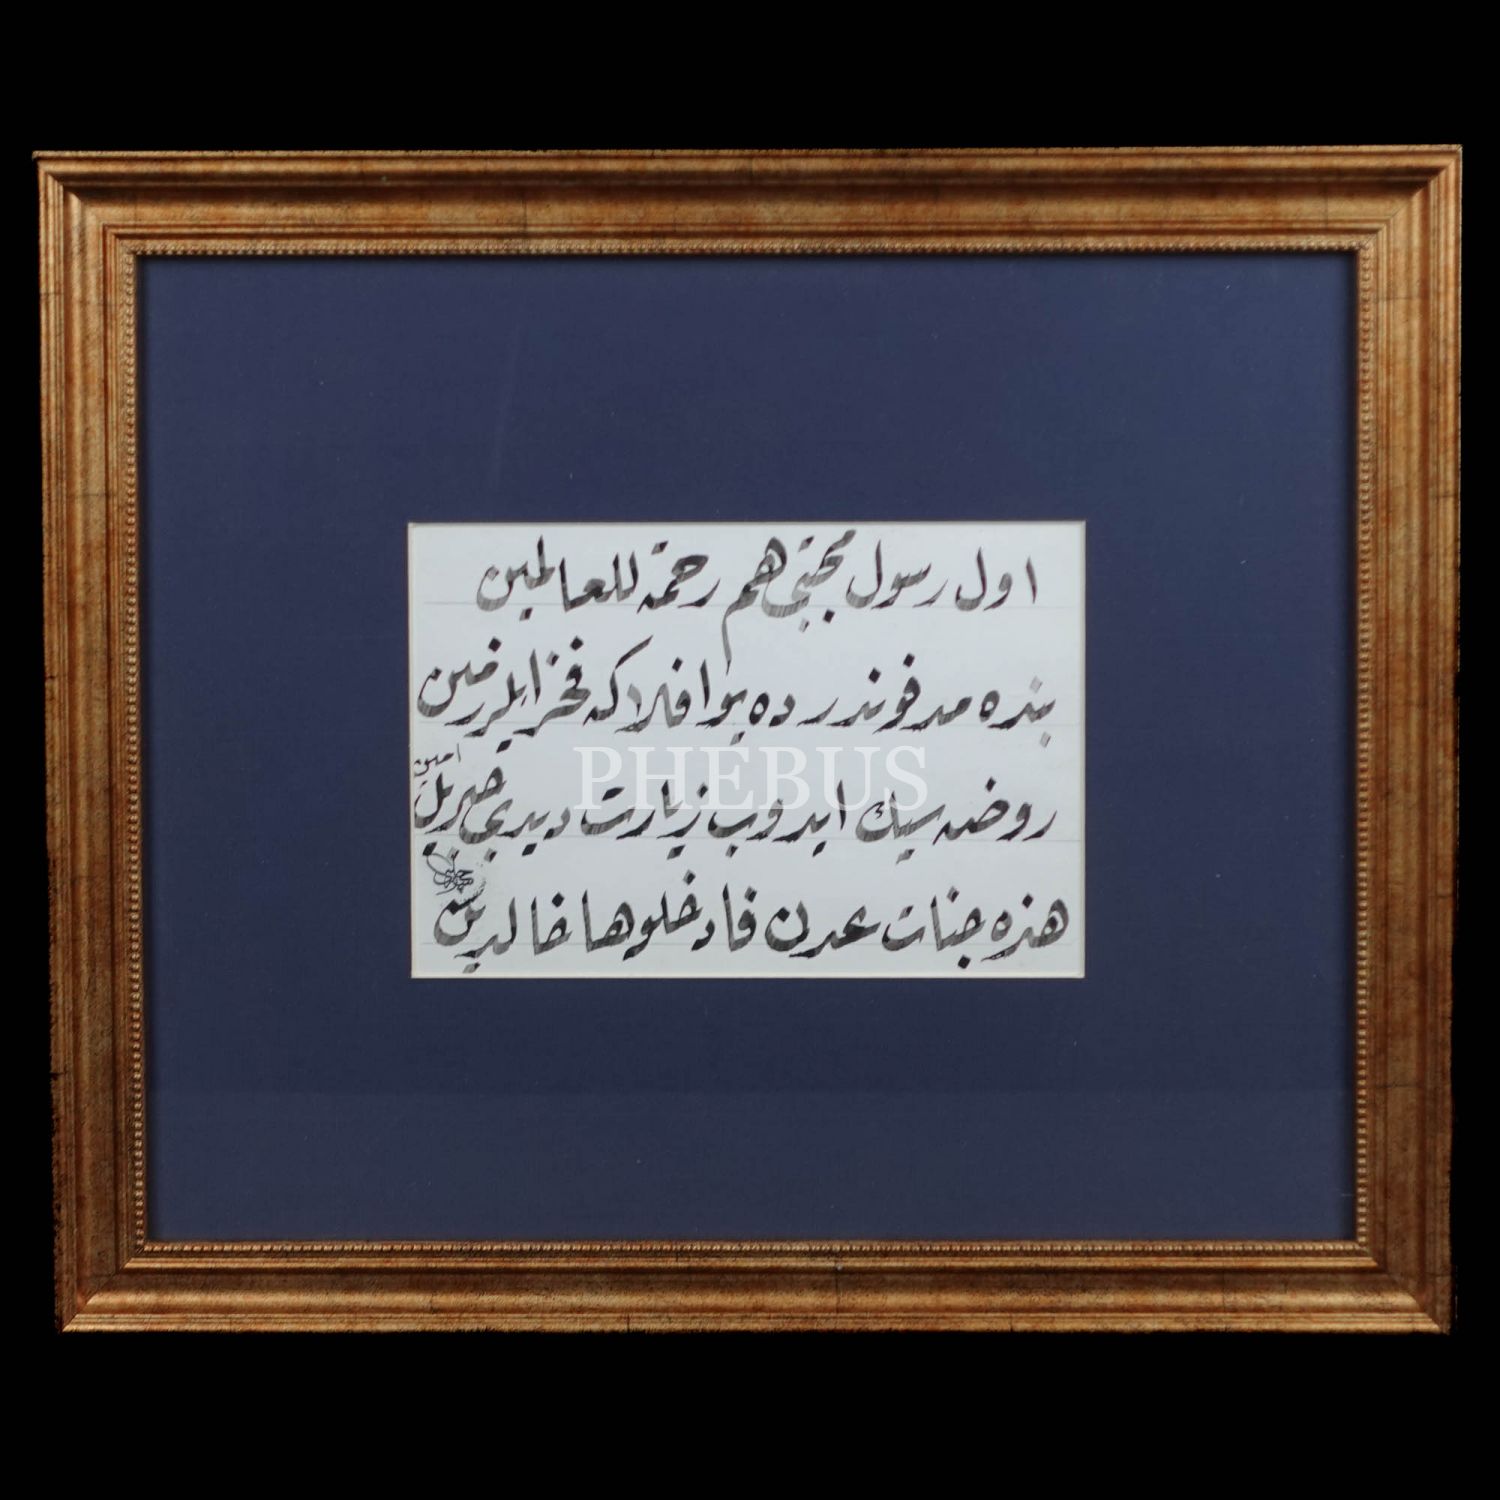 اول رسول مجتبى هم رحمة للعالمين
بنده مدفوندر ديو افلاكه فخر ايلر زمين
روضه سيك ايدوب زيارت ديدى جبريل امين
هذه جنات عدن فادخلوها خالدين
PHEBUS